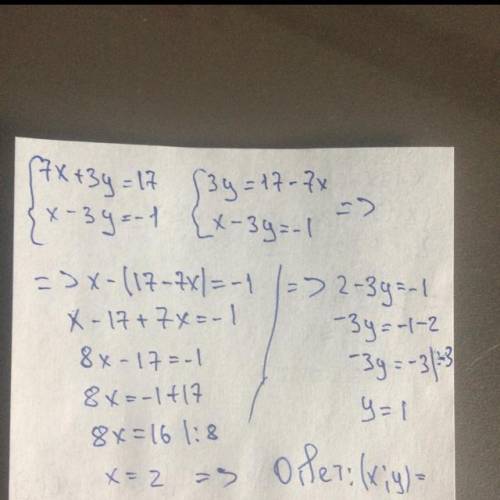 {7x+3y=17 {3y=17-7x
{x-3y=-1 {x-3y=-1 =>
=> x-(17-7x)=-1
x-17+7x=-1
8x-17=-1
8x=-1+17
8x=16 |:8
x=2 =>
=> 2-3y=-1
-3y=-1-2
-3y=-3|:-3
y=1
Ответ: (x;y)=